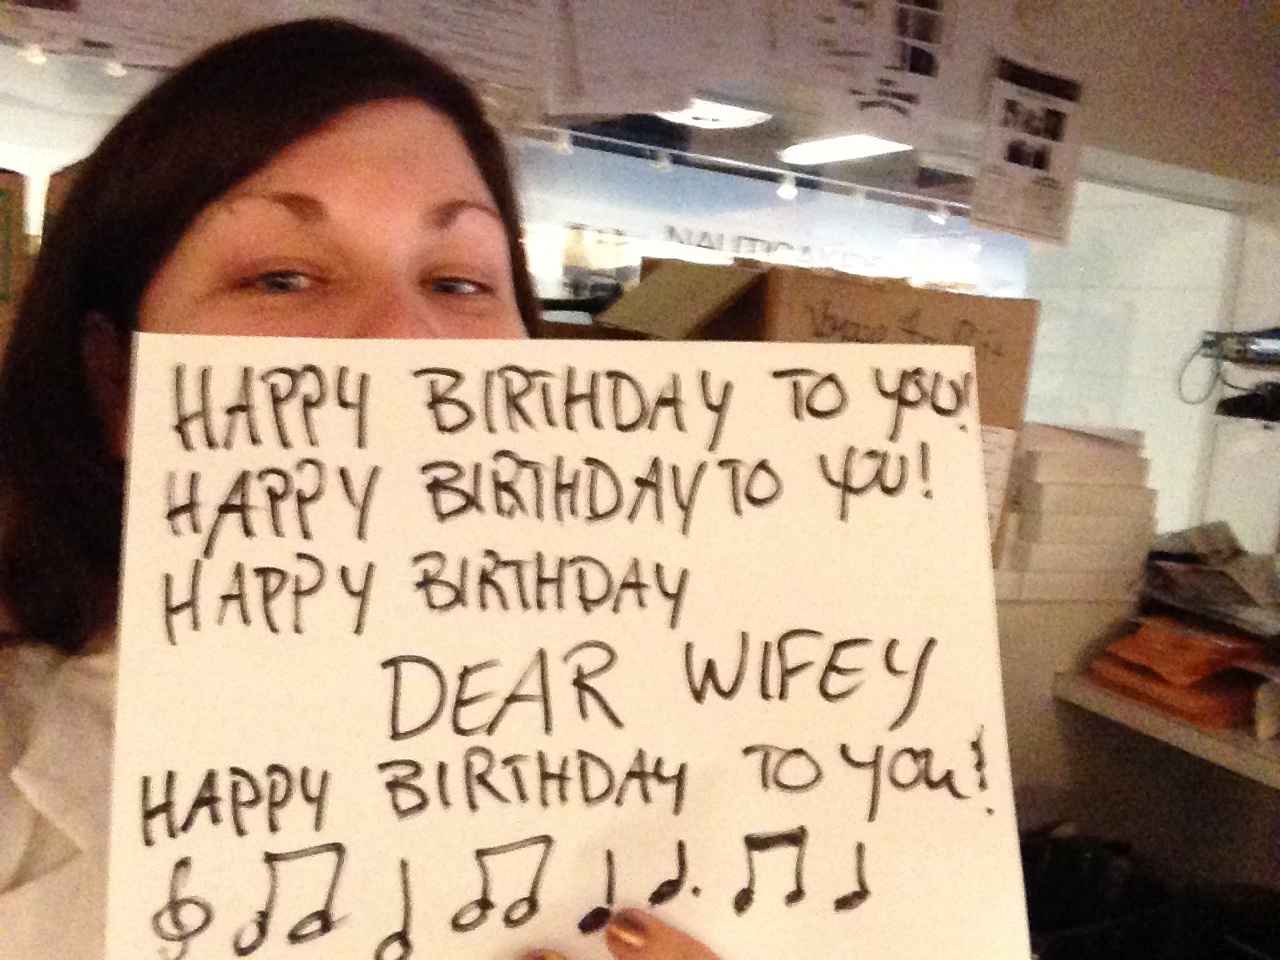 NAUTICA KIDS
HAPPY BIRTHDAY TO YOU!
HAPPY BIRTHDAY TO YOU!
HAPPY BIRTHDAY
DEAR WIFEY
HAPPY BIRTHDAY TO YOU!